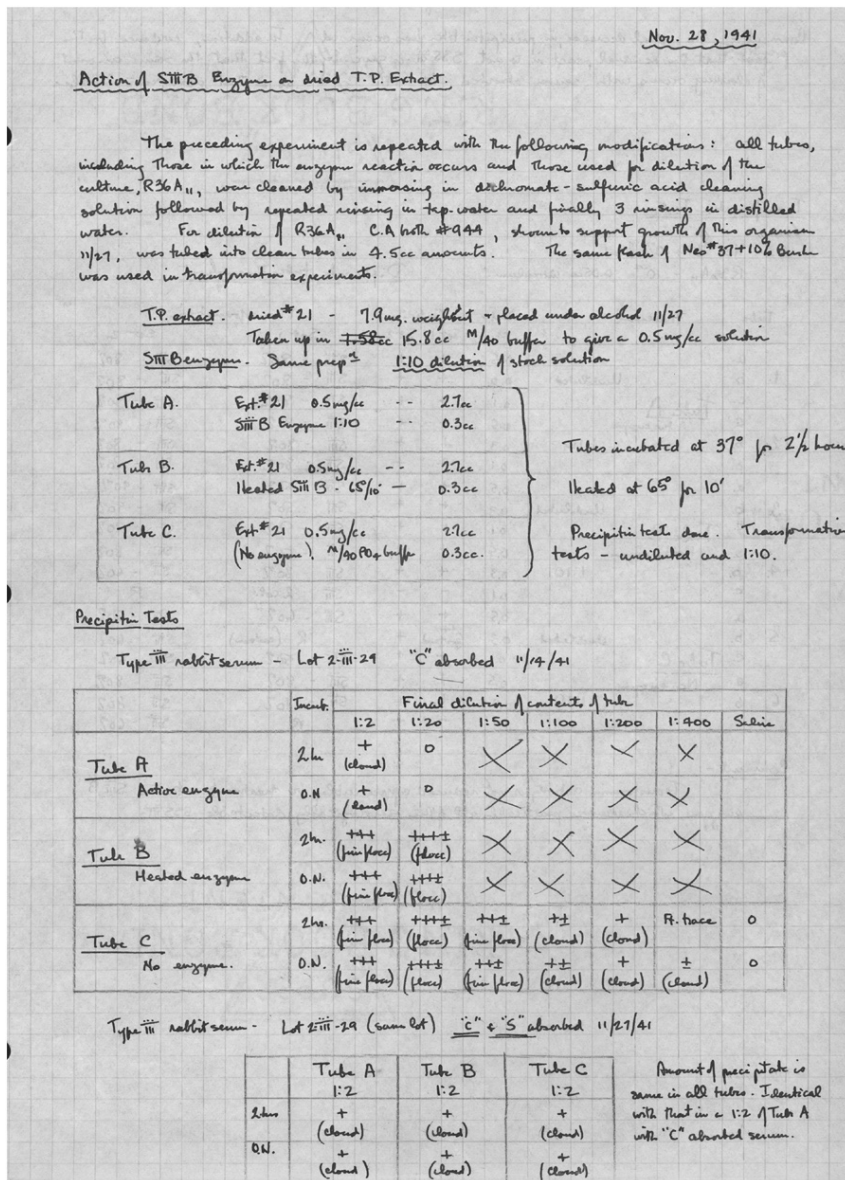 Nov. 28, 1941
Action of SIII B Enzyme on dried T.P. Extract.
The preceding experiment is repeated with the following modifications: all tubes,
including those in which the enzyme reaction occurs and those used for dilution of the
culture, R36A11, were cleaned by immersing in dichromate-sulfuric acid cleaning
solution followed by repeated rinsing in tap-water and finally 3 rinsings in distilled
water. For dilution of R36A11, C.A broth #944, shown to support growth of this organism
11/27, was tubed into clean tubes in 4.5cc amounts. The same flask of Neo #37+10%
was used in transformation experiments.
T.P. extract. dried #21 - 7.9mg. weighed out + placed under alcohol 11/27
Taken up in 1.58cc 15.8cc M/40 buffer to give a 0.5mg/cc solution
SIII B enzyme. Same prepn 1:10 dilution of stock solution
Tube A. Ext.#21 0.5mg/cc -- 2.7cc
SIII B Enzyme 1:10 -- 0.3cc
Tube B. Ext.#21 0.5mg/cc -- 2.7cc
Heated SIII B - 65°/10' — 0.3cc
Tube C. Ext#21 0.5mg/cc 2.7cc
(No enzyme). M/40 PO4 buffer 0.3cc.
Tubes incubated at 37° for 2½ hours
Heated at 65° for 10'
Precipitin tests done. Transformation
tests - undiluted and 1:10.
Precipitin Tests
Type III rabbit serum - Lot 2-III-29 "C" absorbed 11/14/41
Incub. Final dilution of contents of tube
1:2 1:20 1:50 1:100 1:200 1:400 Saline
Tube A 2hr + 0
(cloud)
Active enzyme O.N + 0
(cloud)
Tube B 2hr. +++ +++±
(fine flocc) (flocc)
Heated enzyme O.N. +++ +++±
(fine flocc) (flocc)
Tube C 2hr. +++ +++± ++± +± + ft. trace 0
(fine flocc) (flocc) (fine flocc) (cloud) (cloud)
No enzyme. O.N. +++ +++± ++± +± + ± 0
(fine flocc) (flocc) (fine flocc) (cloud) (cloud) (cloud)
Type III rabbit serum - Lot 2-III-29 (same lot) "C" & "S" absorbed 11/27/41
Tube A Tube B Tube C
1:2 1:2 1:2
2hrs + + +
(cloud) (cloud) (cloud)
O.N. + + +
(cloud) (cloud) (cloud)
Amount of precipitate is
same in all tubes. Identical
with that in a 1:2 of Tube A
with "C" absorbed serum.